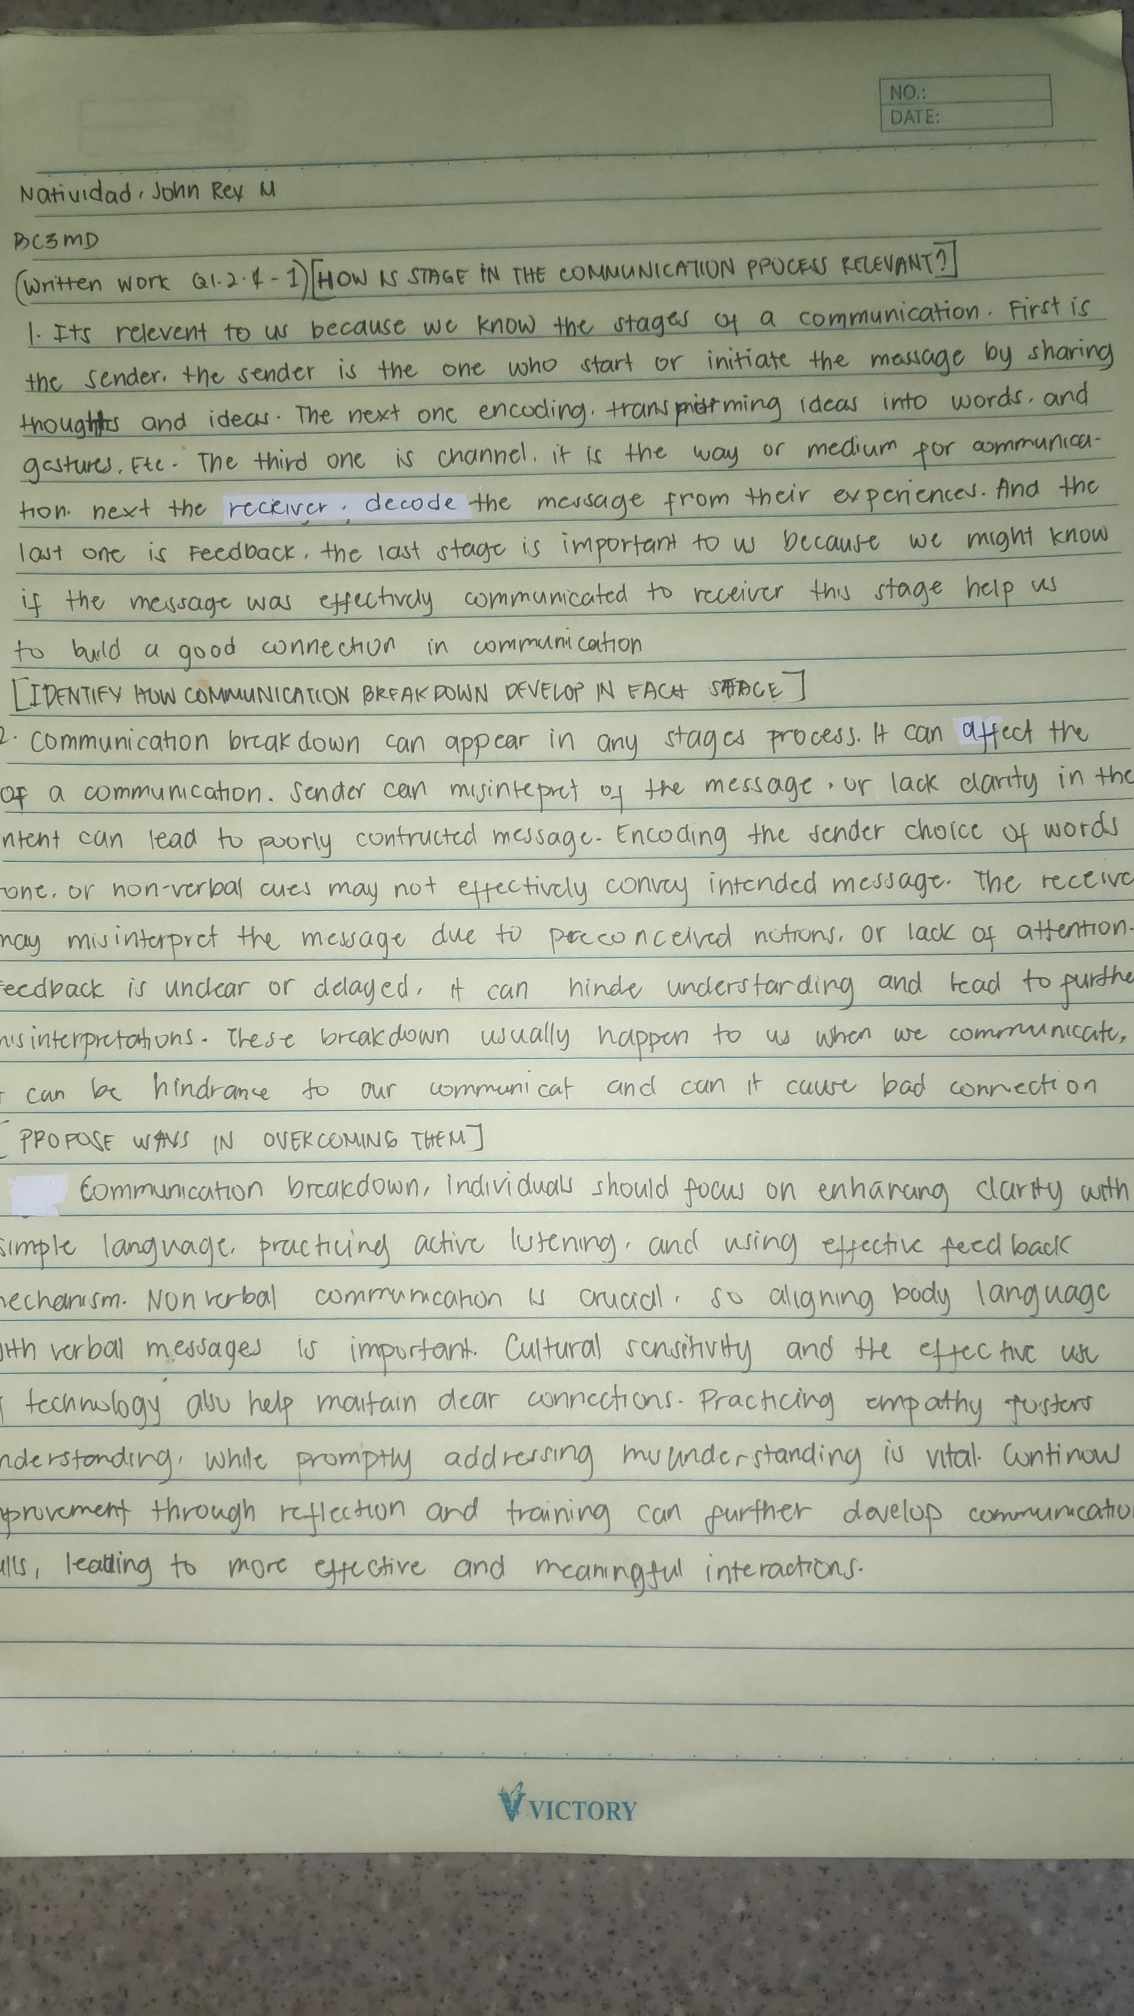 NO.:
DATE:
Natividad, John Rey M
BC3MD
(written work Q1.2.4-1) [HOW IS STAGE IN THE COMMUNICATION PROCESS RELEVANT?]
1. Its relevent to us because we know the stages of a communication. First is
the sender, the sender is the one who start or initiate the message by sharing
thoughts and ideas. The next one encoding, ideas into words, and
gestures, Etc. The third one is channel, it is the way or medium for communica-
tion. next the receiver, decode the message from their experiences. And the
last one is Feedback, the last stage is important to us because we might know
if the message was effectively communicated to receiver this stage help us
to build a good connection in communication
[IDENTIFY HOW COMMUNICATION BREAKDOWN DEVELOP IN EACH STAGE]
2. Communication breakdown can appear in any stages process. It can affect the
of a communication. Sender can misintepret of the message, or lack clarity in the
ntent can lead to poorly contructed message. Encoding the sender choice of words
one, or non-verbal cues may not effectively convey intended message. The receive
may misinterpret the message due to preconceived notions, or lack of attention.
eedback is unclear or delayed, it can hinde understanding and lead to furthe
misinterpretations. These breakdown usually happen to us when we communicate,
can be hindrance to our communicat and can it cause bad connection
[PROPOSE WAYS IN OVERCOMING THEM]
Communication breakdown, individuals should focus on enhancing clarity with
simple language, practicing active listening, and using effective feedback
mechanism. Nonverbal communication is crucial, so aligning body language
with verbal messages is important. Cultural sensitivity and the effective use
technology also help maitain clear connections. Practicing empathy fosters
nderstanding, while promptly addressing misunderstanding is vital. Continous
provement through reflection and training can further develop communicatio
ills, leading to more effective and meaningful interactions.
VICTORY